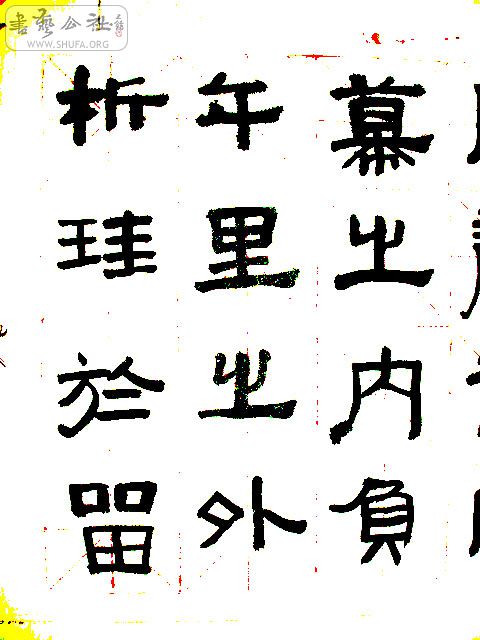 書藝公社
WWW.SHUFA.ORG
幕之內負
千里之外
析珪於留